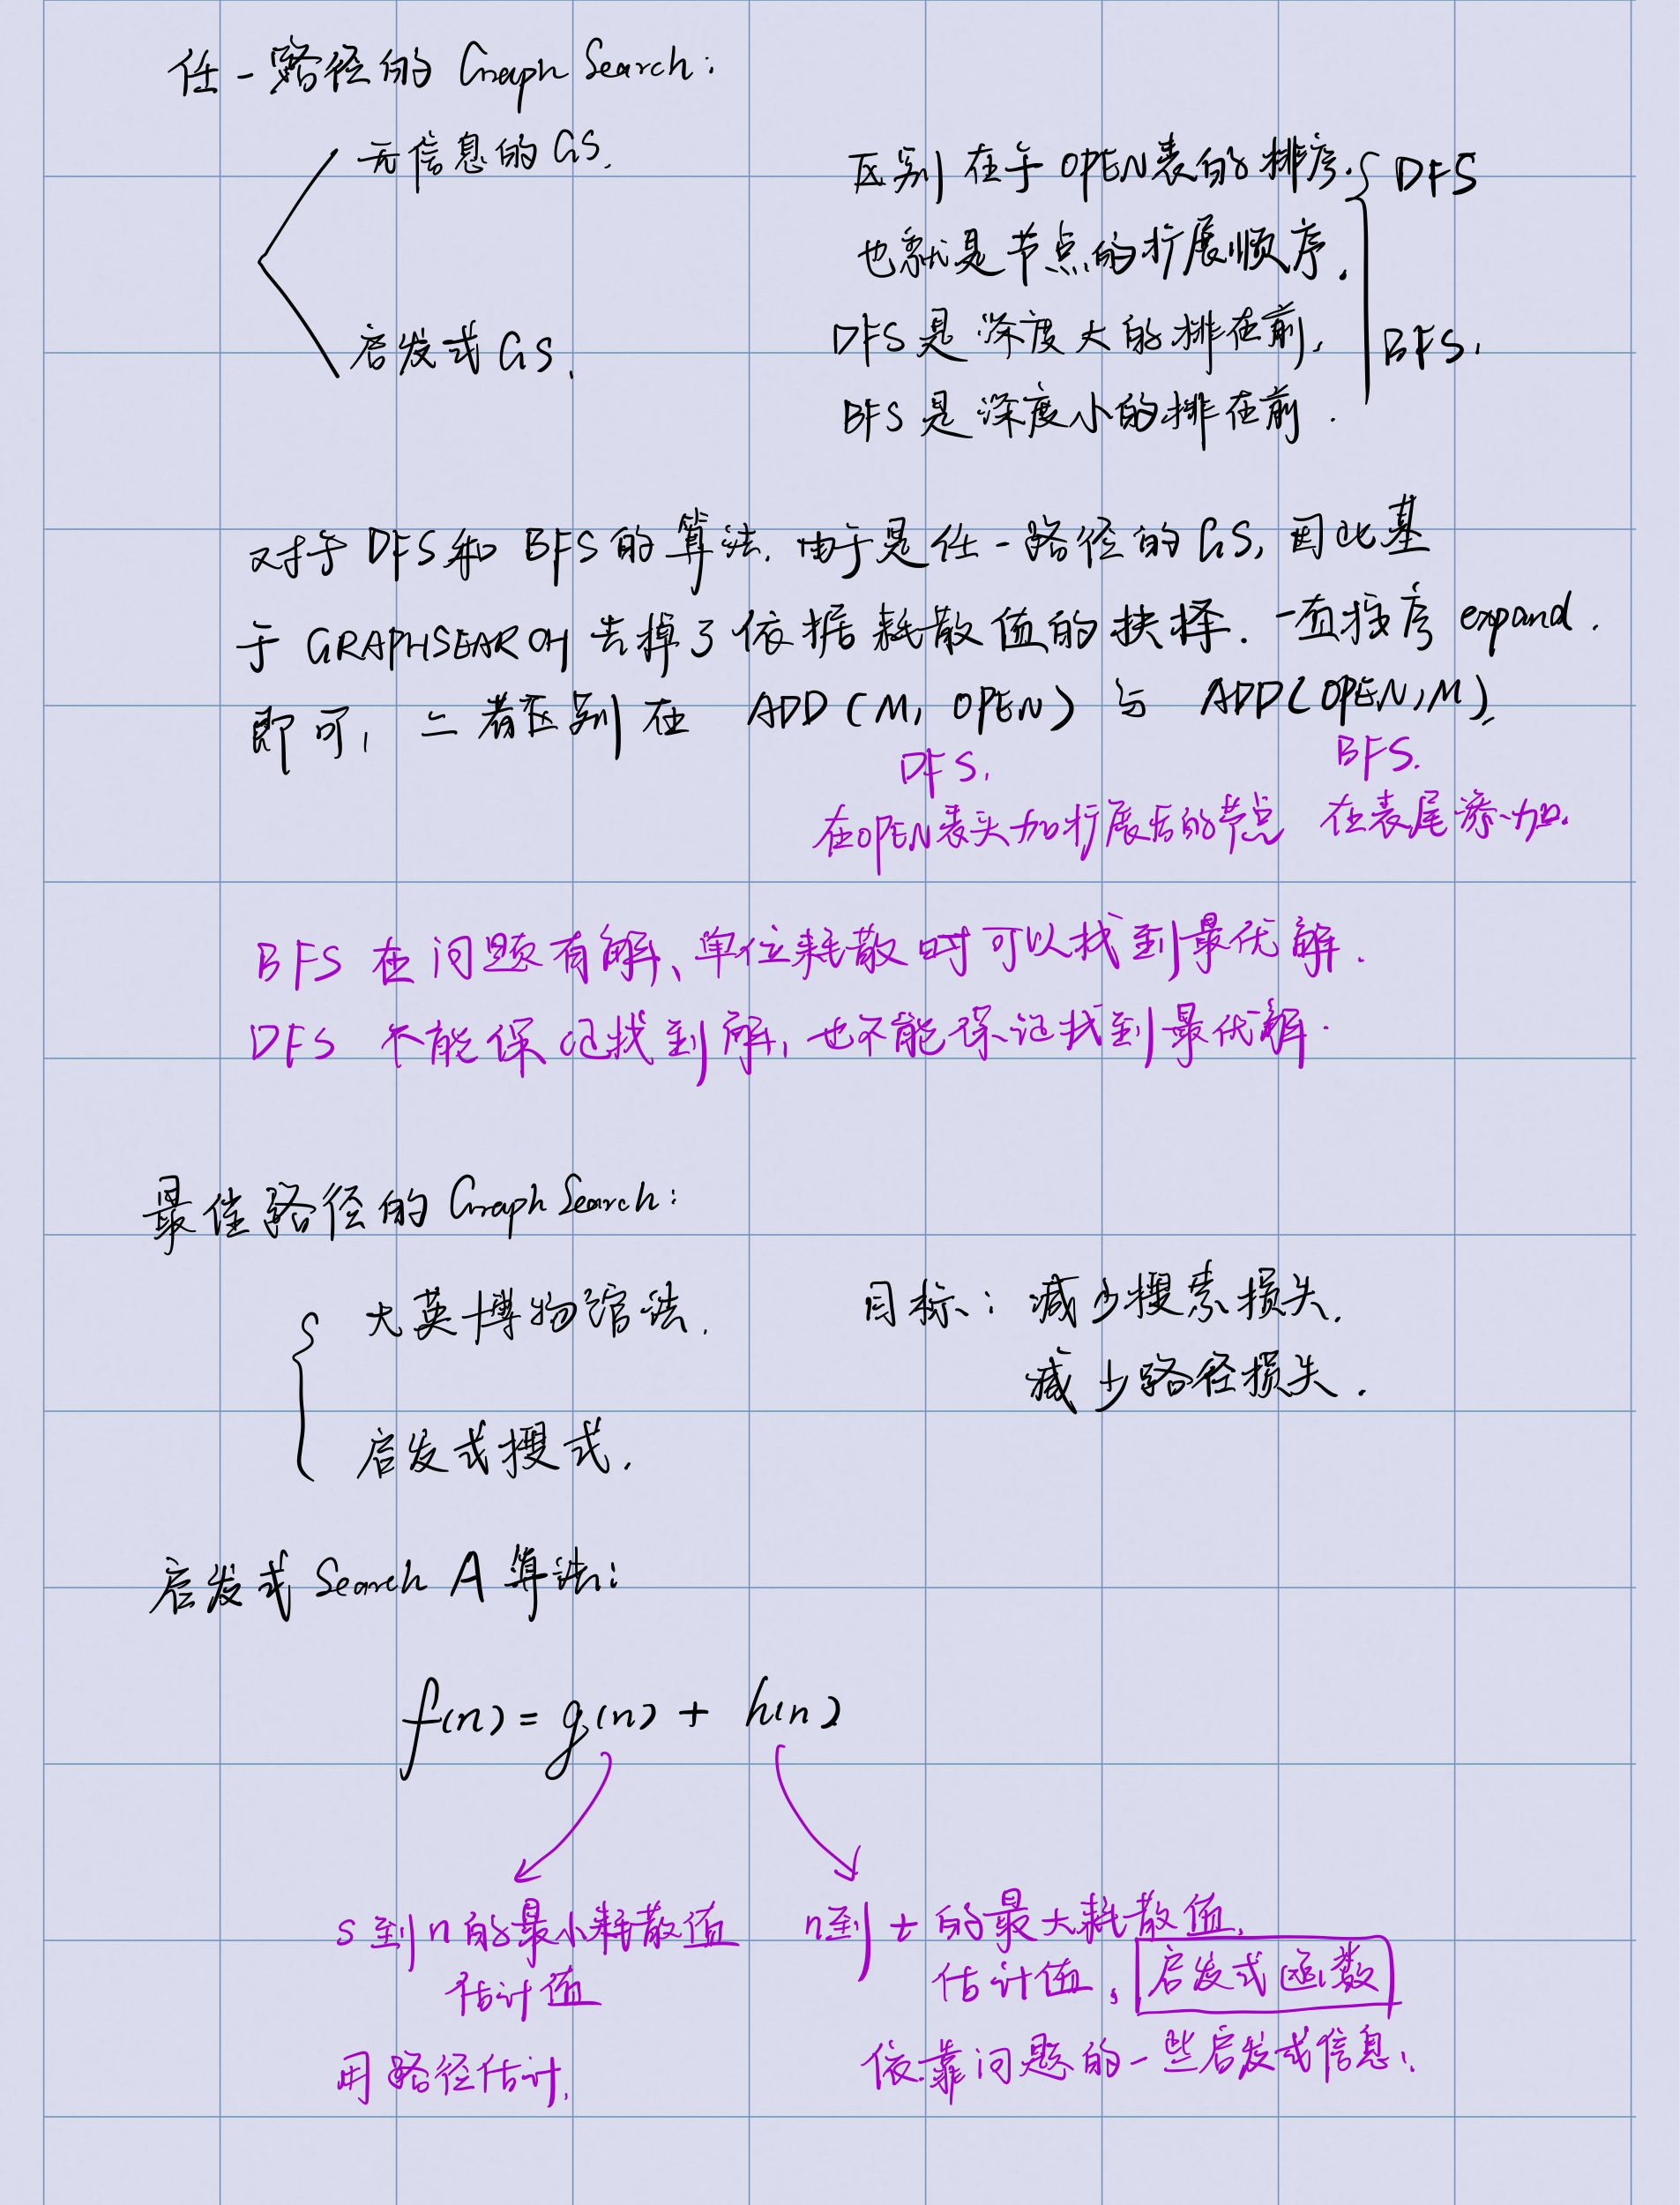 任一路径的 Graph Search:
无信息的 GS.
启发式 GS.
区别在于 OPEN表的排序.
也就是节点的扩展顺序.
DFS 是深度大的排在前,
BFS 是深度小的排在前.
DFS
BFS.
对于 DFS 和 BFS 的算法. 由于是任一路径的 GS, 因此基
于 GRAPHSEARCH 去掉了依据耗散值的抉择. 一直按序 expand.
即可, 二者区别在 ADD(M, OPEN) 与 ADD(OPEN, M).
DFS. BFS.
在OPEN表头加扩展后的节点 在表尾添加.
BFS 在问题有解、单位耗散时可以找到最优解.
DFS 不能保证找到解, 也不能保证找到最优解.
最佳路径的 Graph Search:
大英博物馆法.
启发式搜式.
目标: 减少搜索损失.
减少路径损失.
启发式 Search A 算法:
f(n) = g(n) + h(n)
s到n的最小耗散值
估计值
用路径估计.
n到t的最大耗散值.
估计值, 启发式函数
依靠问题的一些启发式信息.